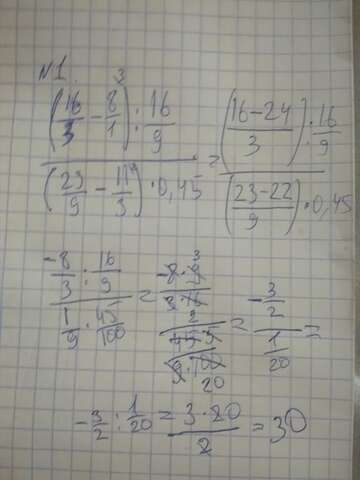 №1.
((16/3 - 8/1 ³) : 16/9) / ((23/9 - 11/3) · 0,45) = (((16-24)/3) : 16/9) / (((23-22)/9) · 0,45
(-8/3 : 16/9) / (1/9 · 45/100) = (-8·9 ³/3·16 2) / (45 5/9·100 20) = (-3/2) / (1/20) =
-3/2 : 1/20 = 3·20/2 = 30